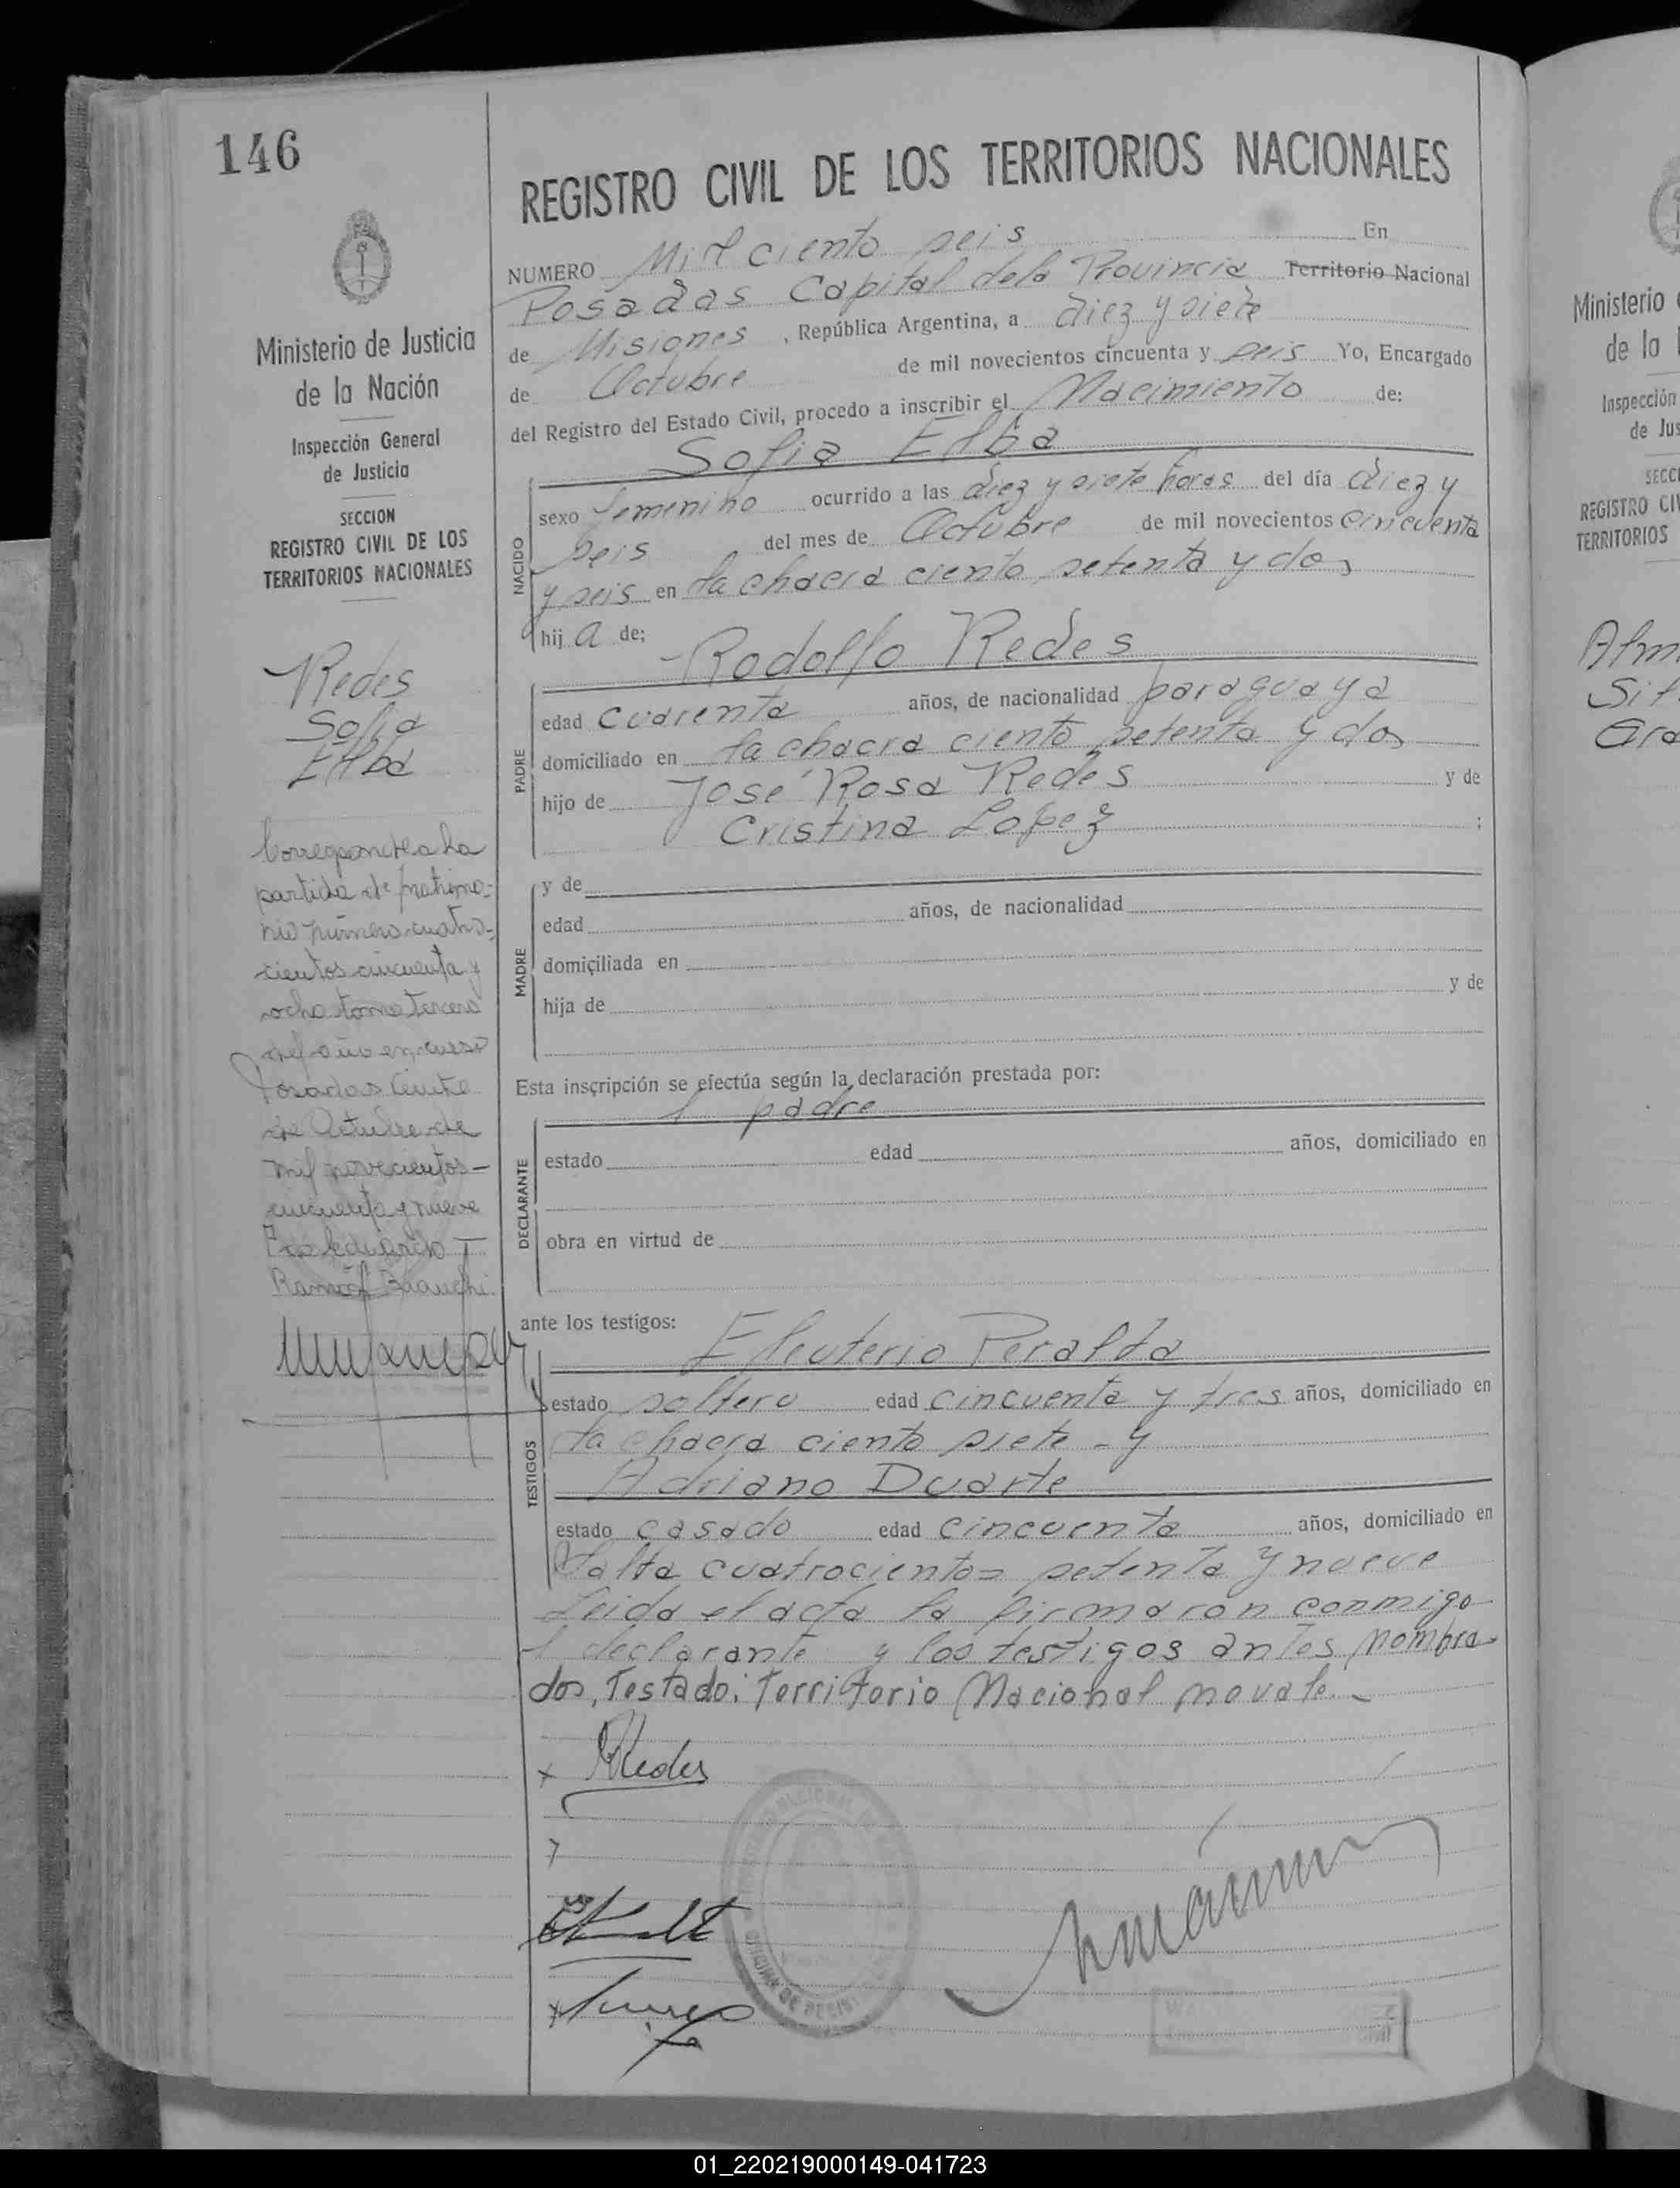 146
REGISTRO CIVIL DE LOS TERRITORIOS NACIONALES
NUMERO Mil ciento seis En
Posadas Capital de la Provincia Territorio Nacional
de Misiones, República Argentina, a diez y siete
de Octubre de mil novecientos cincuenta y seis Yo, Encargado
del Registro del Estado Civil, procedo a inscribir el Nacimiento de:
Sofia Elba
NACIDO
sexo femenino ocurrido a las diez y siete horas del día diez y
seis del mes de Octubre de mil novecientos cincuenta
y seis en la chacra ciento setenta y dos
hija de;
Rodolfo Redes
PADRE
edad cuarenta años, de nacionalidad paraguaya
domiciliado en la chacra ciento setenta y dos
hijo de José Rosa Redes y de
Cristina Lopez ;
MADRE
y de
edad años, de nacionalidad
domiciliada en
hija de y de
Esta inscripción se efectúa según la declaración prestada por:
l padre
DECLARANTE
estado edad años, domiciliado en
obra en virtud de
ante los testigos:
Eleuterio Peralta
TESTIGOS
estado soltero edad cincuenta y tres años, domiciliado en
la chacra ciento siete - y
Adriano Duarte
estado casado edad cincuenta años, domiciliado en
Salta cuatrocientos setenta y nueve
Leida el acta la firmaron conmigo
l declarante y los testigos antes nombra
dos, Testado: Territorio Nacional no vale.-
x Redes
Ministerio de Justicia
de la Nación
Inspección General
de Justicia
SECCION
REGISTRO CIVIL DE LOS
TERRITORIOS NACIONALES
Redes
Sofia
Elba
Corresponde a la
partida de matrimo-
nio número cuatro-
cientos cincuenta y
ocho tomo tercero
del año en curso
Posadas
de Octubre de
mil novecientos
cincuenta y nueve
Eduardo
Ramón
Ministerio
de la
Inspección
de Jus
SECC
REGISTRO CIV
TERRITORIOS
01_220219000149-041723